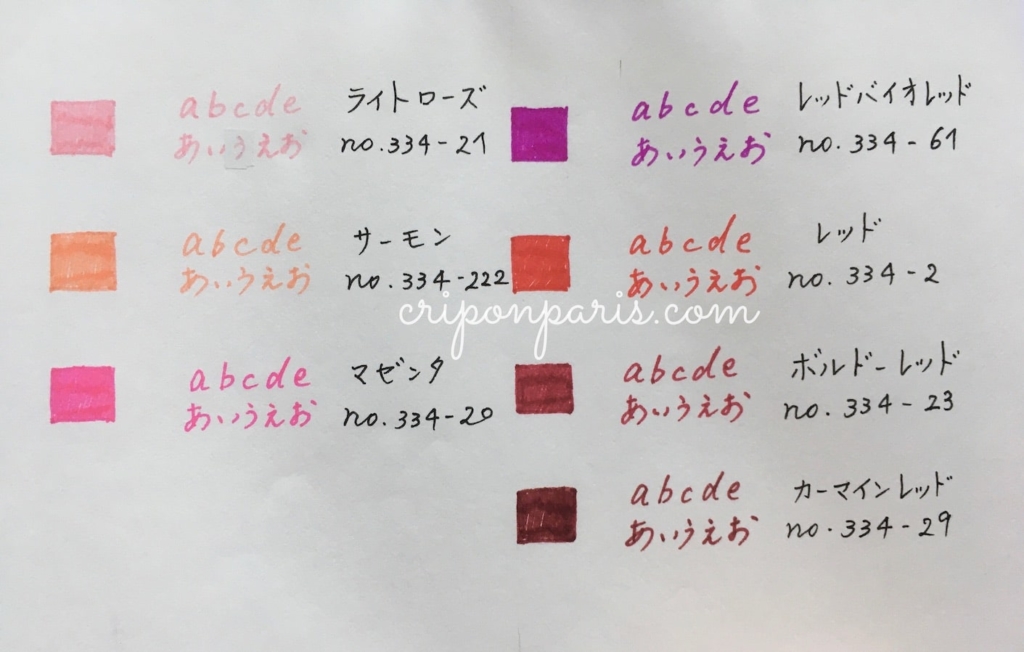 abcde
あいうえお
ライトローズ
no.334-21
abcde
あいうえお
サーモン
no.334-222
abcde
あいうえお
マゼンタ
no.334-20
abcde
あいうえお
レッドバイオレッド
no.334-61
abcde
あいうえお
レッド
no.334-2
abcde
あいうえお
ボルドーレッド
no.334-23
abcde
あいうえお
カーマインレッド
no.334-29
criponparis.com